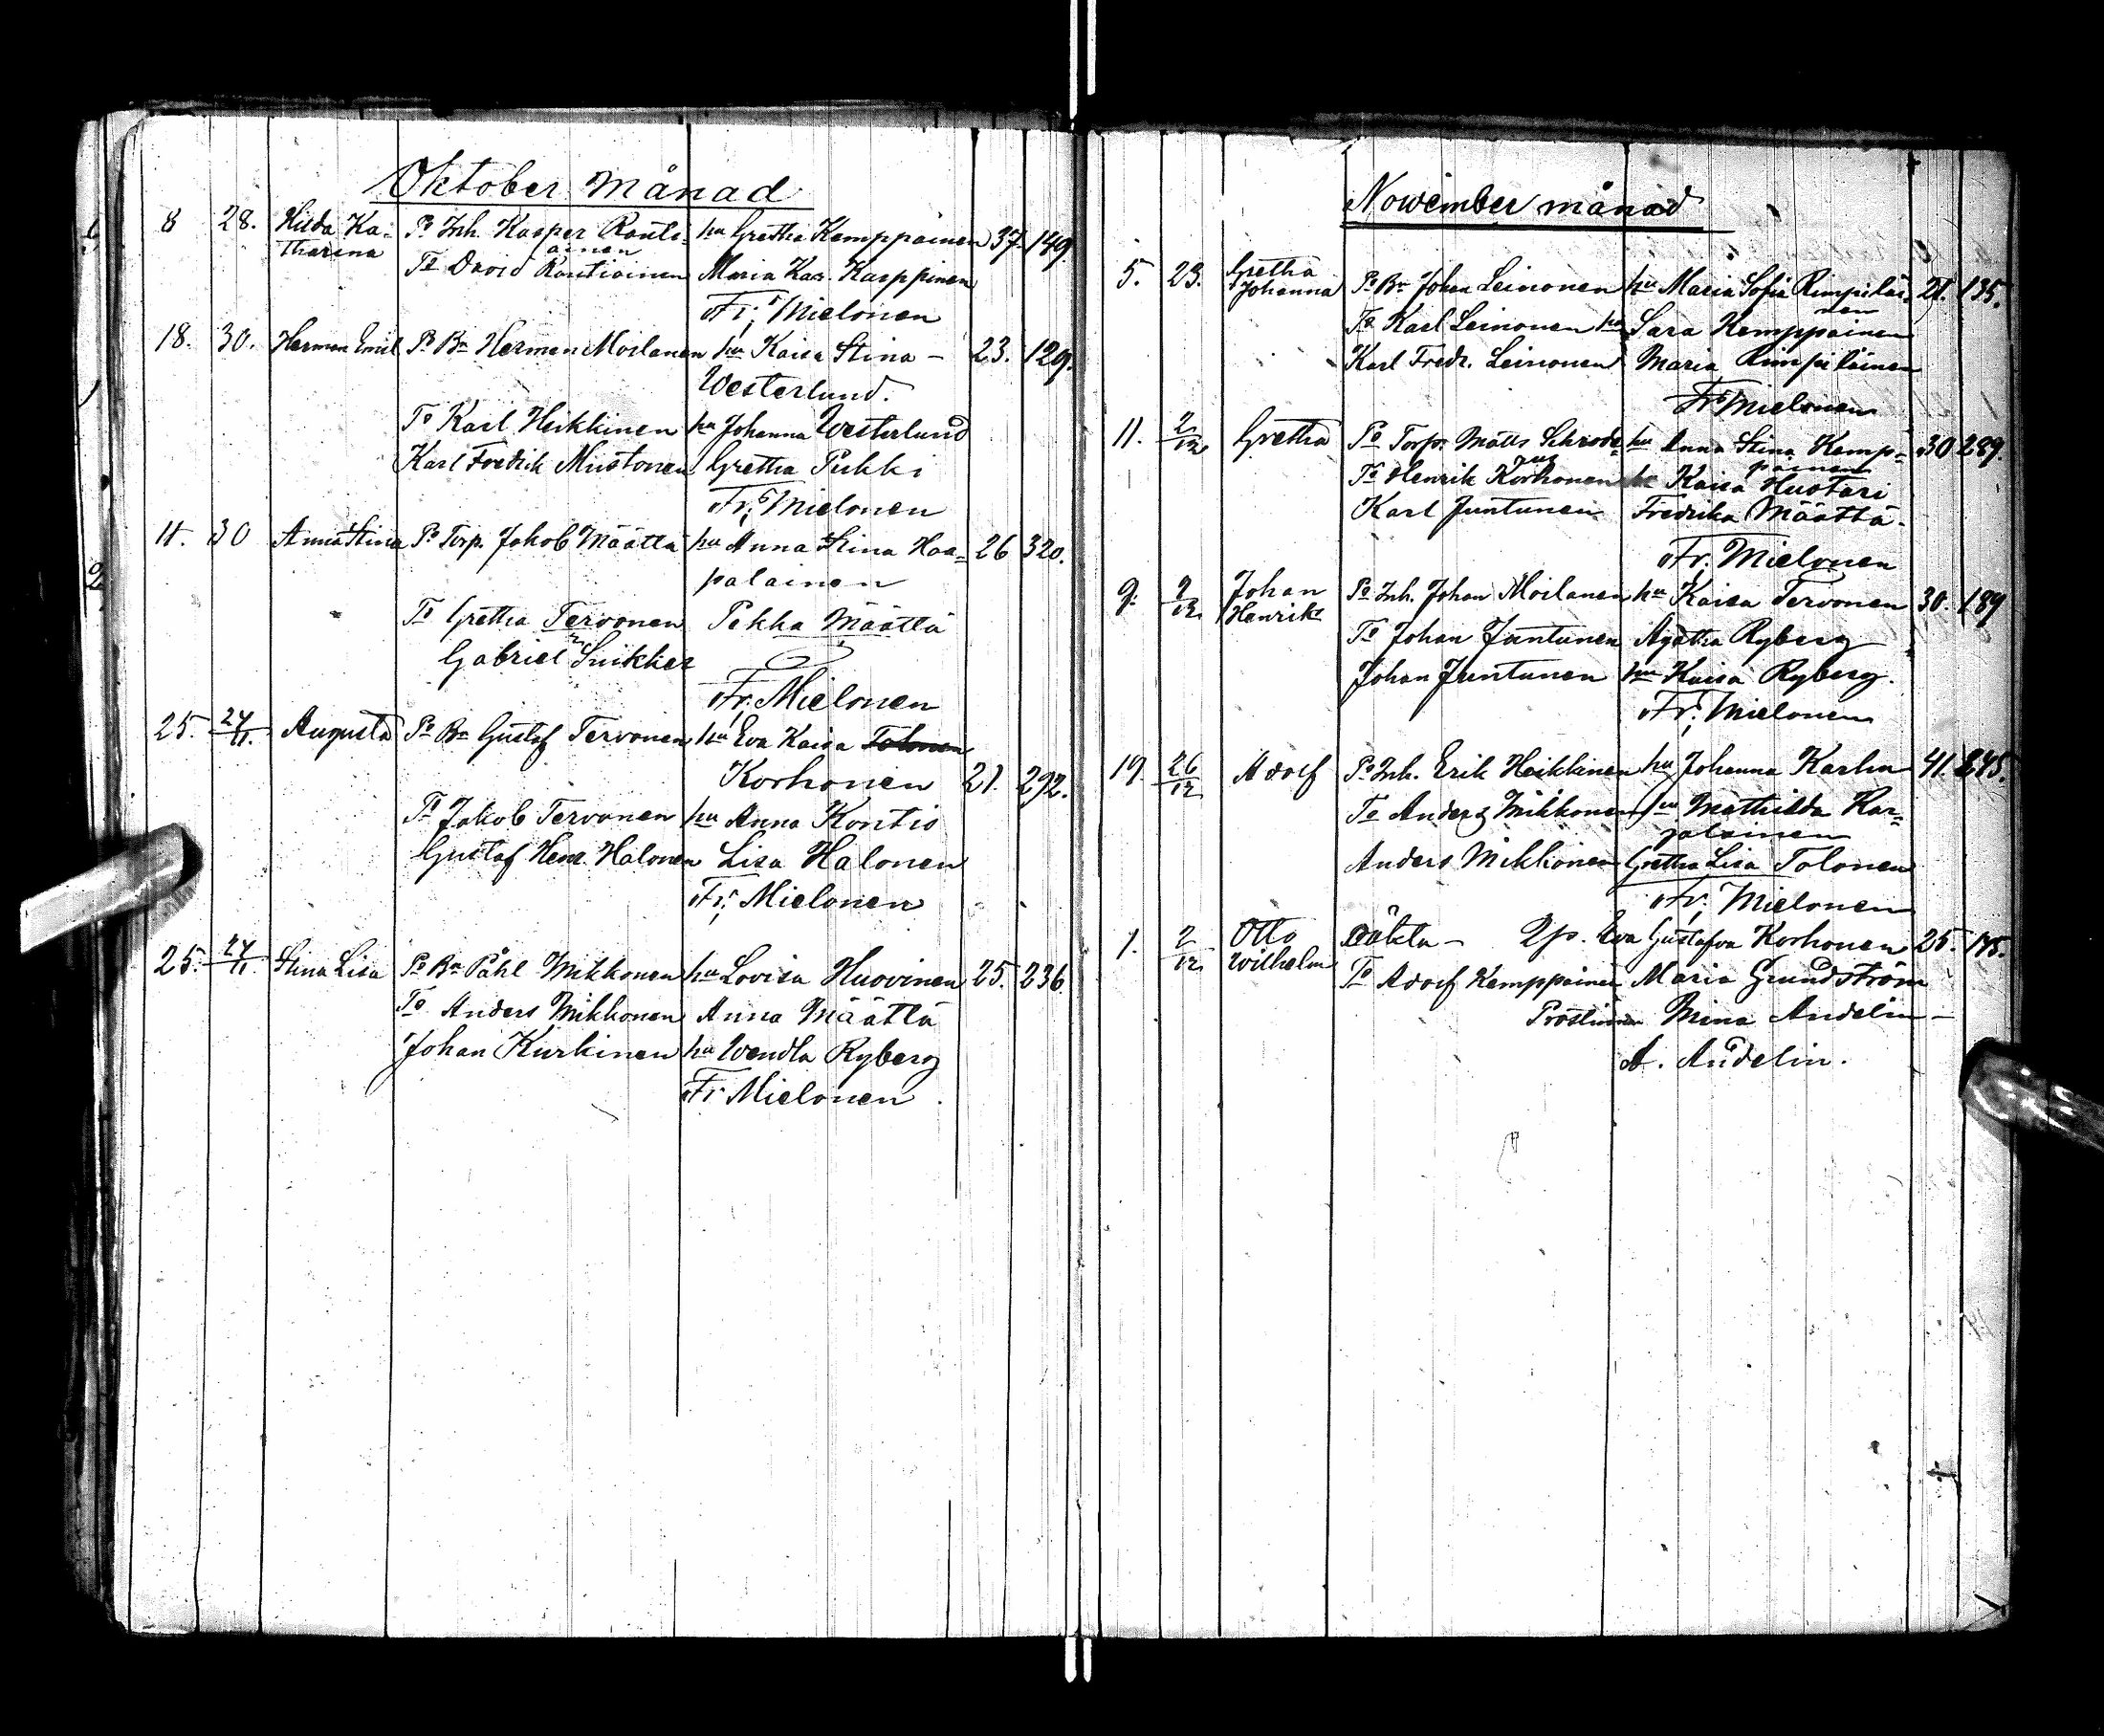 Oktober månad
8 28. Hilda Ka- Po Inh. Kasper Ronti- hu Gretha Kemppainen 37. 149.
tharina ainen
To David Rontiainen Maria Kar. Karppinen
Fr; Mielonen
18. 30. Herman Emil Po Bn Herman Moilanen hu Kaisa Stina – 23. 129.
Westerlund.
To Karl Heikkinen hu Johanna Westerlund
Karl Fredrik Mustonen Gretha Pukki
Fr; Mielonen
11. 30 Anna Stina Po Torp. Jakob Määttä hu Anna Stina Haa= 26 320.
palainen
To Gretha Tervonen Pekka Määttä
Gabriel
Fr. Mielonen
25. 24/11. Augusta Po Bn Gustaf Tervonen hu Eva Kaisa Tolonen
Korhonen 21. 292.
To Jakob Tervonen hu Anna Kontio
Gustaf Henr. Halonen Lisa Halonen
Fr; Mielonen
25. 24/11. Stina Lisa Po Bn Påhl Mikkonen hu Lovisa Huovinen 25. 236.
To Anders Mikkonen Anna Määttä
Johan Kurkinen hu Wendla Ryberg
Fr Mielonen
Nowember månad
5. 23. Gretha
Johanna Po Bn Johan Leinonen hu Maria Sofia Rimpiläi- 21. 135.
nen
To Karl Leinonen hu Sara Kemppainen
Karl Fredr. Leinonen Maria Rimpiläinen
Fr Mielonen
11. 2/12 Gretha Po Torp. Matts Schrode- hu Anna Stina Kemp= 30 289.
painen
To Henrik Korhonen Kaisa Huotari
Karl Juntunen Fredrika Määttä
Fr; Mielonen
9. 9/12 Johan
Henrik Po Inh. Johan Moilanen hu Kaisa Tervonen 30. 189
To Johan Juntunen Agatha Ryberg
Johan Juntunen hu Kaisa Ryberg.
Fr; Mielonen
19. 26/12 Adolf Po Inh. Erik Heikkinen hu Johanna Karlin 41. 245.
To Anders Mikkonen hu Mathilda Kar-
jalainen
Anders Mikkonen Gretha Lisa Tolonen
Fr; Mielonen
1. 2/12 Otto
Wilhelm Oäkta – Qp. Eva Gustafva Korhonen 25.
To Adolf Kemppainen Maria Grundström
Prostinnan Mina Andelin –
A. Andelin.